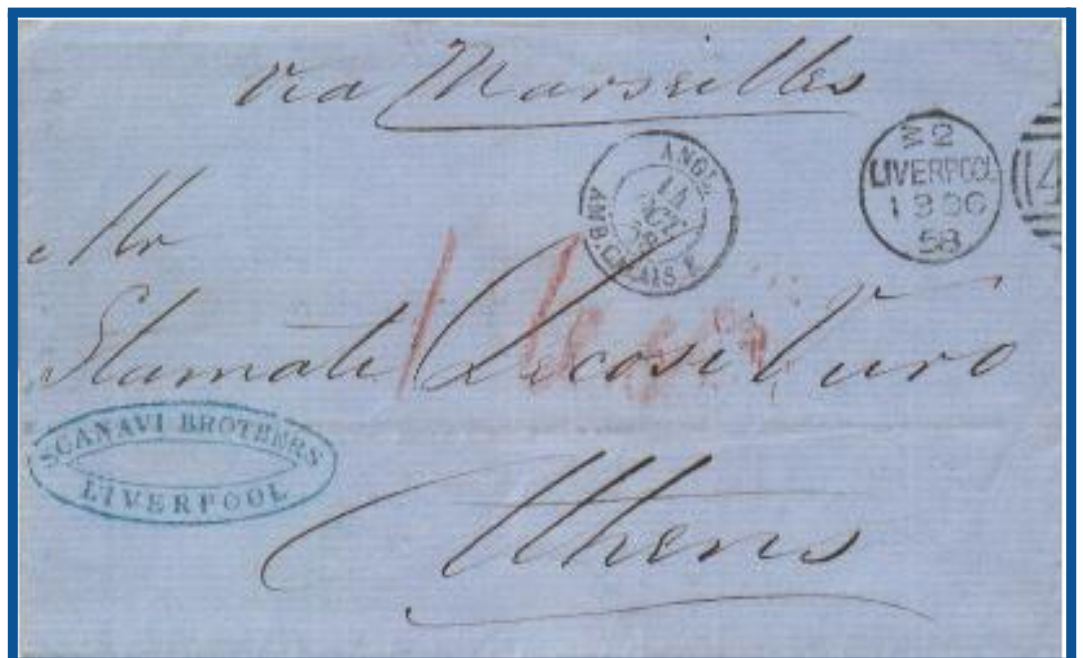 via Marseilles
ANGL.
14
OCT.
58
AMB. CALAIS
W
LIVERPOOL
58
4
Mr
Stamati
SCANAVI BROTHERS
LIVERPOOL
Athens